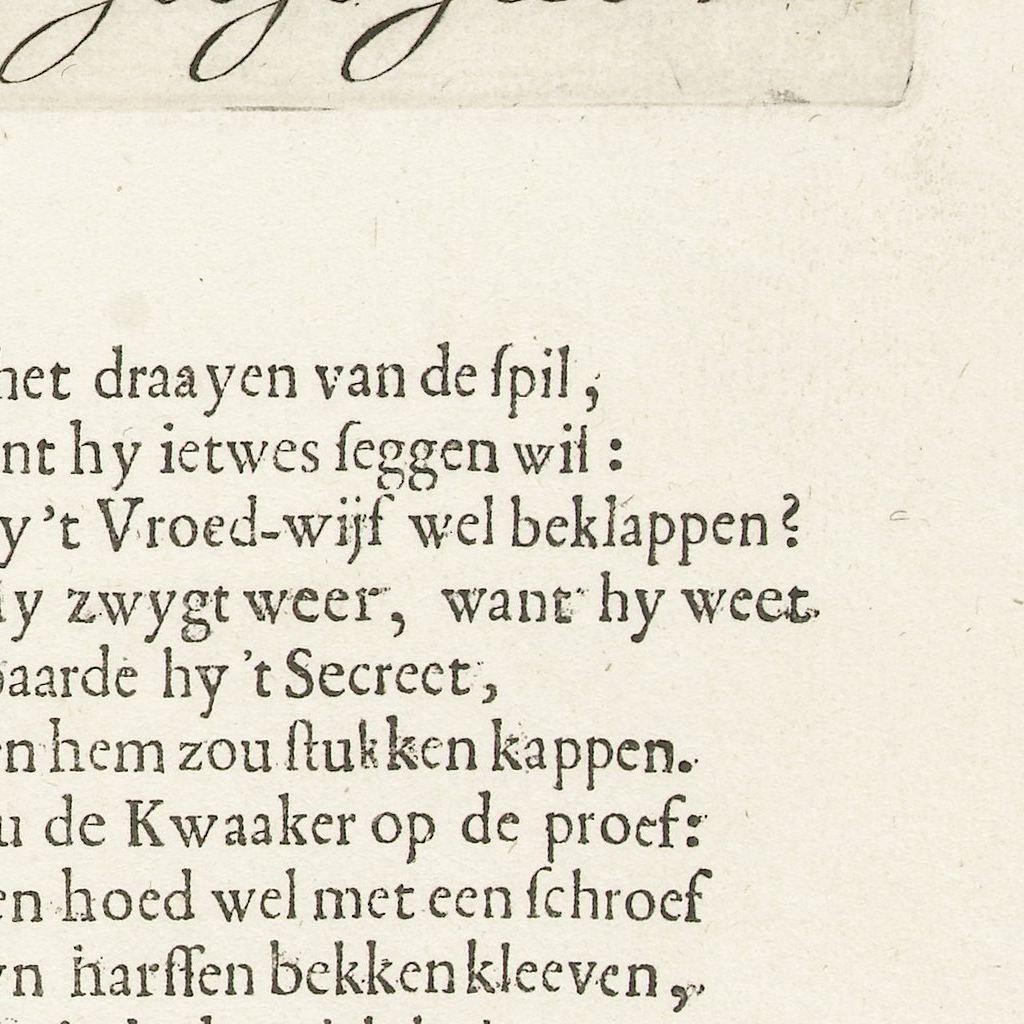 het draayen van de ſpil,
nt hy ietwes ſeggen wil:
y 't Vroed-wijf wel beklappen?
y zwygt weer, want hy weet
baarde hy 't Secreet,
n hem zou ſtukken kappen.
u de Kwaaker op de proef:
en hoed wel met een ſchroef
yn harſſen bekken kleeven,